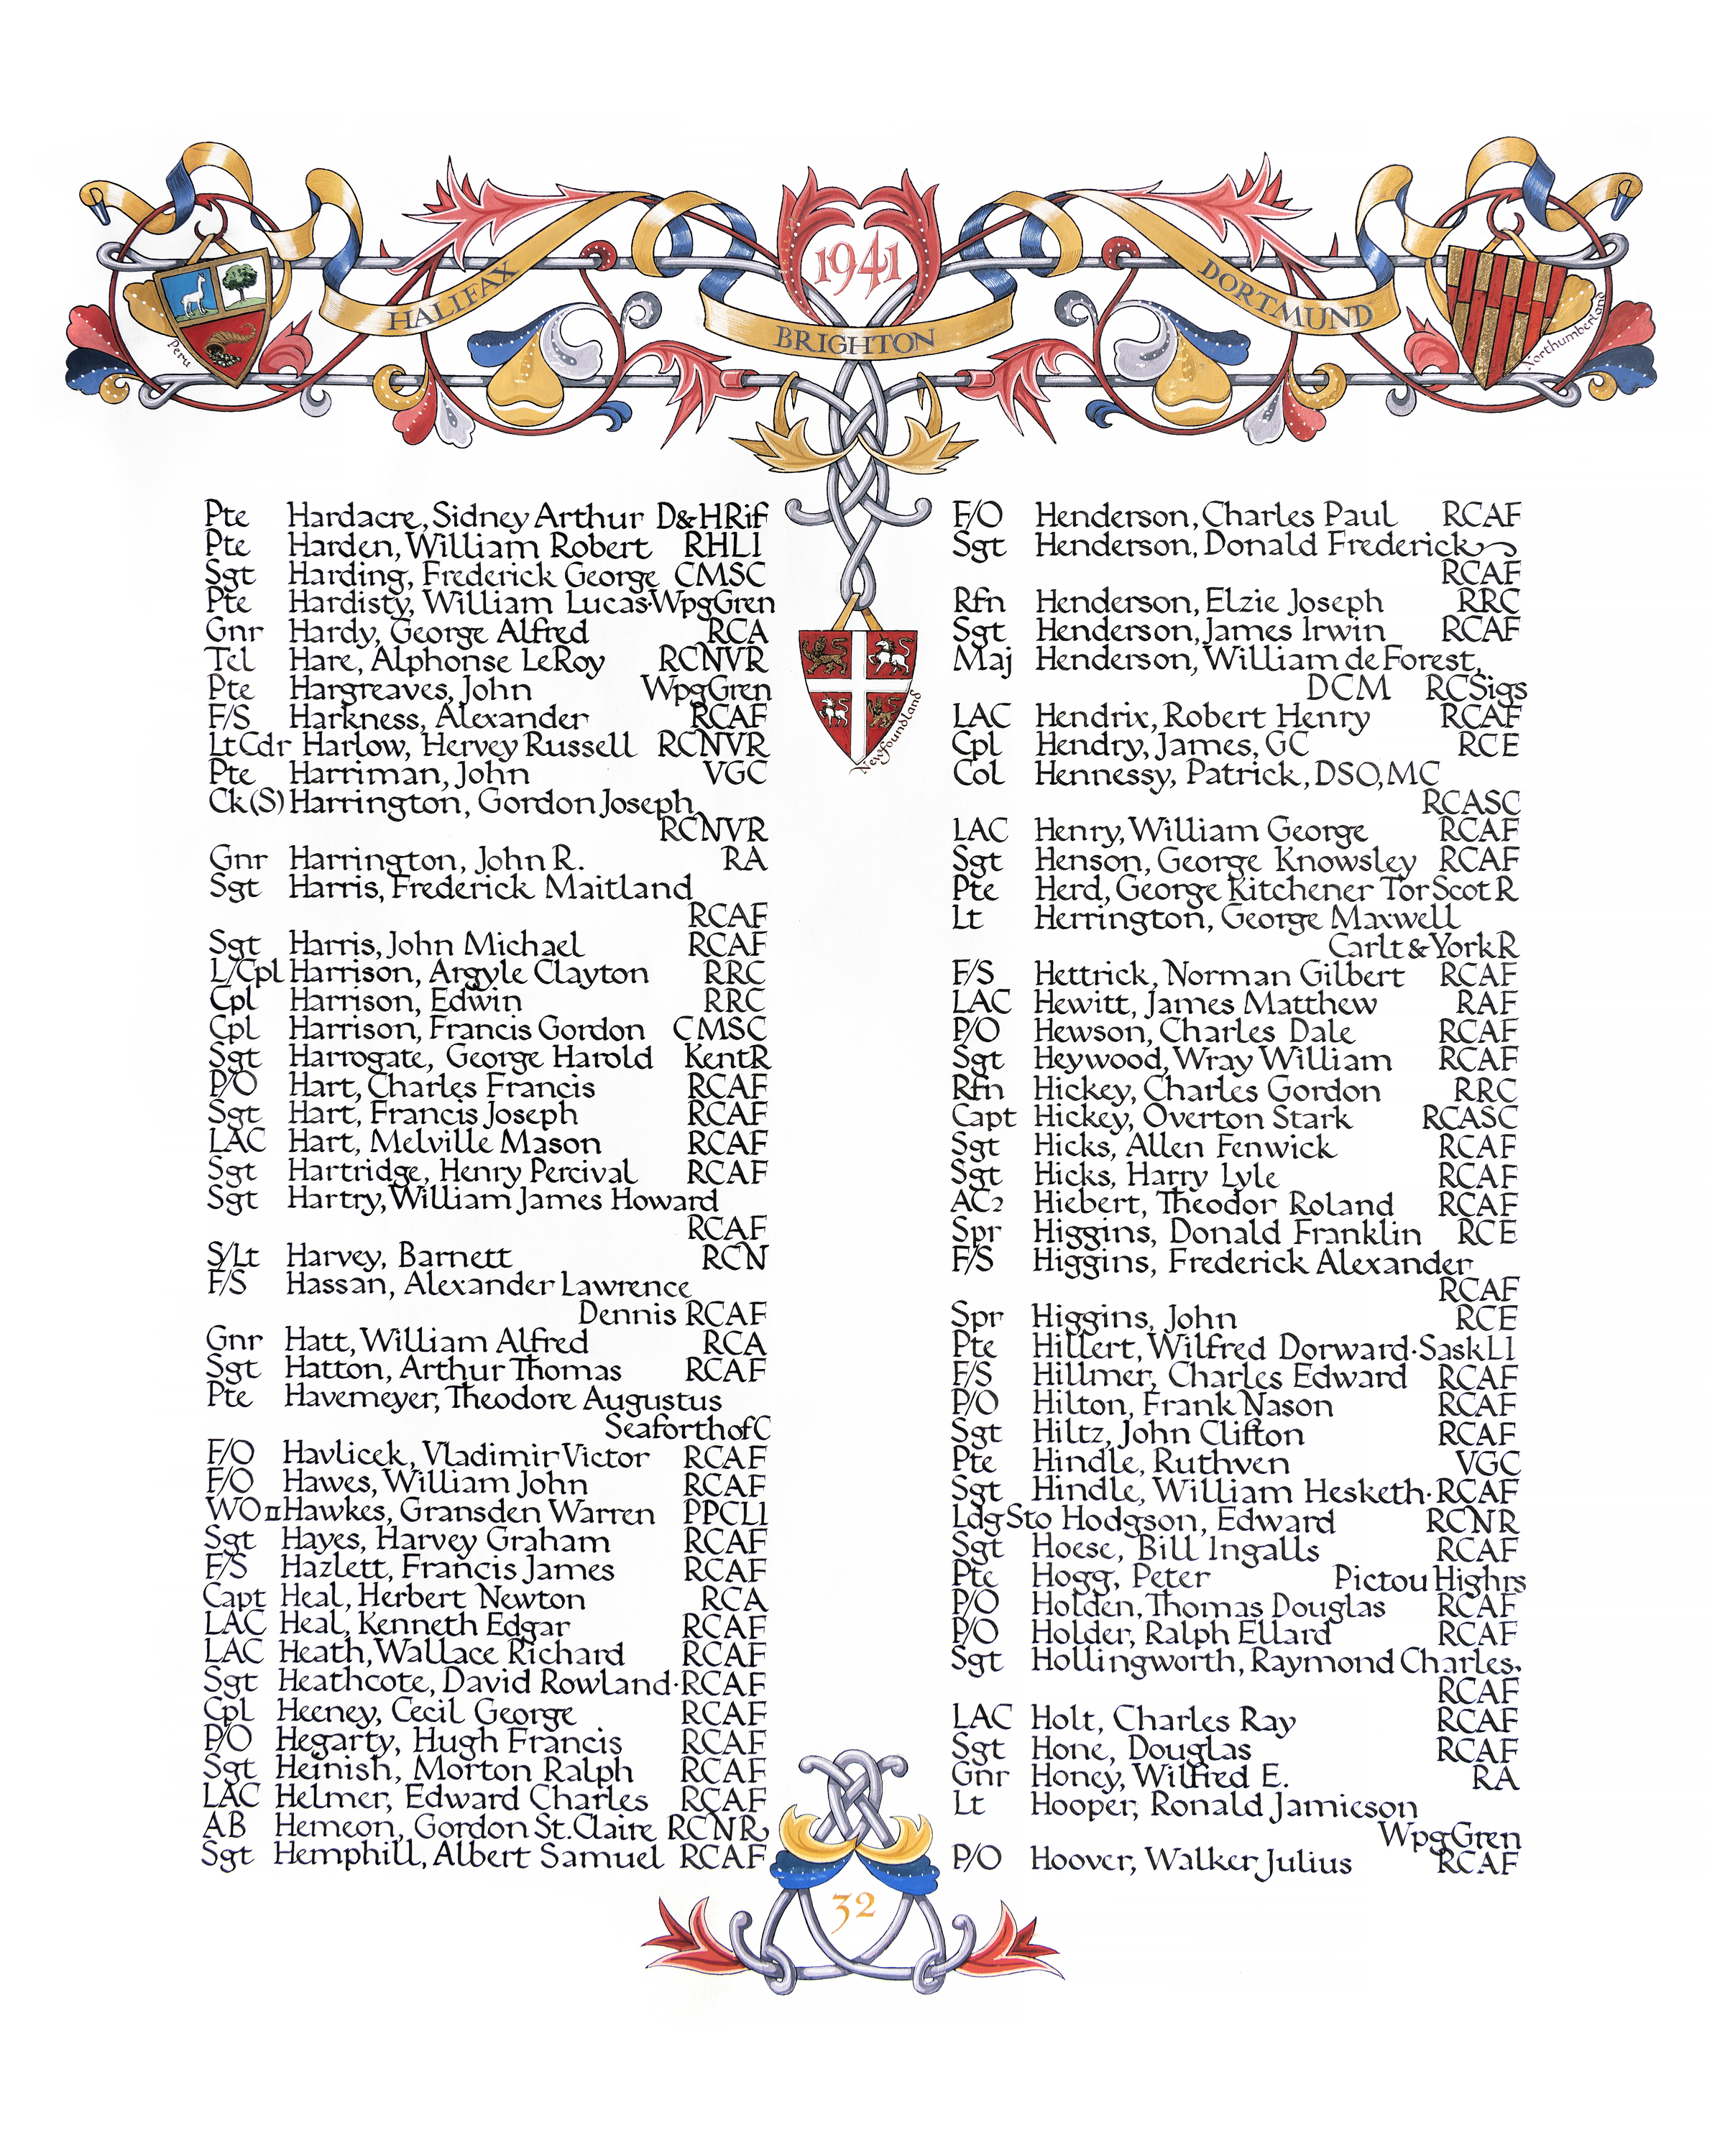 1941
HALIFAX
BRIGHTON
DORTMUND
Peru
Northumberland
Newfoundland
Pte Hardacre, Sidney Arthur D&HRif
Pte Harden, William Robert RHLI
Sgt Harding, Frederick George CMSC
Pte Hardisty, William Lucas·WpgGren
Gnr Hardy, George Alfred RCA
Tel Hare, Alphonse LeRoy RCNVR
Pte Hargreaves, John WpgGren
F/S Harkness, Alexander RCAF
LtCdr Harlow, Hervey Russell RCNVR
Pte Harriman, John VGC
Ck(S) Harrington, Gordon Joseph
RCNVR
Gnr Harrington, John R. RA
Sgt Harris, Frederick Maitland
RCAF
Sgt Harris, John Michael RCAF
L/Cpl Harrison, Argyle Clayton RRC
Cpl Harrison, Edwin RRC
Cpl Harrison, Francis Gordon CMSC
Sgt Harrogate, George Harold KentR
P/O Hart, Charles Francis RCAF
Sgt Hart, Francis Joseph RCAF
LAC Hart, Melville Mason RCAF
Sgt Hartridge, Henry Percival RCAF
Sgt Hartry, William James Howard
RCAF
S/Lt Harvey, Barnett RCN
F/S Hassan, Alexander Lawrence
Dennis RCAF
Gnr Hatt, William Alfred RCA
Sgt Hatton, Arthur Thomas RCAF
Pte Havemeyer, Theodore Augustus
SeaforthofC
F/O Havlicek, Vladimir Victor RCAF
F/O Hawes, William John RCAF
WO II Hawkes, Gransden Warren PPCLI
Sgt Hayes, Harvey Graham RCAF
F/S Hazlett, Francis James RCAF
Capt Heal, Herbert Newton RCA
LAC Heal, Kenneth Edgar RCAF
LAC Heath, Wallace Richard RCAF
Sgt Heathcote, David Rowland·RCAF
Cpl Heeney, Cecil George RCAF
P/O Hegarty, Hugh Francis RCAF
Sgt Heinish, Morton Ralph RCAF
LAC Helmer, Edward Charles RCAF
AB Hemeon, Gordon St.Claire RCNR
Sgt Hemphill, Albert Samuel RCAF
F/O Henderson, Charles Paul RCAF
Sgt Henderson, Donald Frederick
RCAF
Rfn Henderson, Elzie Joseph RRC
Sgt Henderson, James Irwin RCAF
Maj Henderson, William de Forest,
DCM RCSigs
LAC Hendrix, Robert Henry RCAF
Cpl Hendry, James, GC RCE
Col Hennessy, Patrick, DSO, MC
RCASC
LAC Henry, William George RCAF
Sgt Henson, George Knowsley RCAF
Pte Herd, George Kitchener TorScotR
Lt Herrington, George Maxwell
Carlt&YorkR
F/S Hettrick, Norman Gilbert RCAF
LAC Hewitt, James Matthew RAF
P/O Hewson, Charles Dale RCAF
Sgt Heywood, Wray William RCAF
Rfn Hickey, Charles Gordon RRC
Capt Hickey, Overton Stark RCASC
Sgt Hicks, Allen Fenwick RCAF
Sgt Hicks, Harry Lyle RCAF
AC2 Hiebert, Theodor Roland RCAF
Spr Higgins, Donald Franklin RCE
F/S Higgins, Frederick Alexander
RCAF
Spr Higgins, John RCE
Pte Hillert, Wilfred Dorward·SaskLI
F/S Hillmer, Charles Edward RCAF
P/O Hilton, Frank Nason RCAF
Sgt Hiltz, John Clifton RCAF
Pte Hindle, Ruthven VGC
Sgt Hindle, William Hesketh·RCAF
LdgSto Hodgson, Edward RCNR
Sgt Hoese, Bill Ingalls RCAF
Pte Hogg, Peter Pictou Highrs
P/O Holden, Thomas Douglas RCAF
P/O Holder, Ralph Ellard RCAF
Sgt Hollingworth, Raymond Charles.
RCAF
LAC Holt, Charles Ray RCAF
Sgt Hone, Douglas RCAF
Gnr Honey, Wilfred E. RA
Lt Hooper, Ronald Jamieson
WpgGren
P/O Hoover, Walker Julius RCAF
32